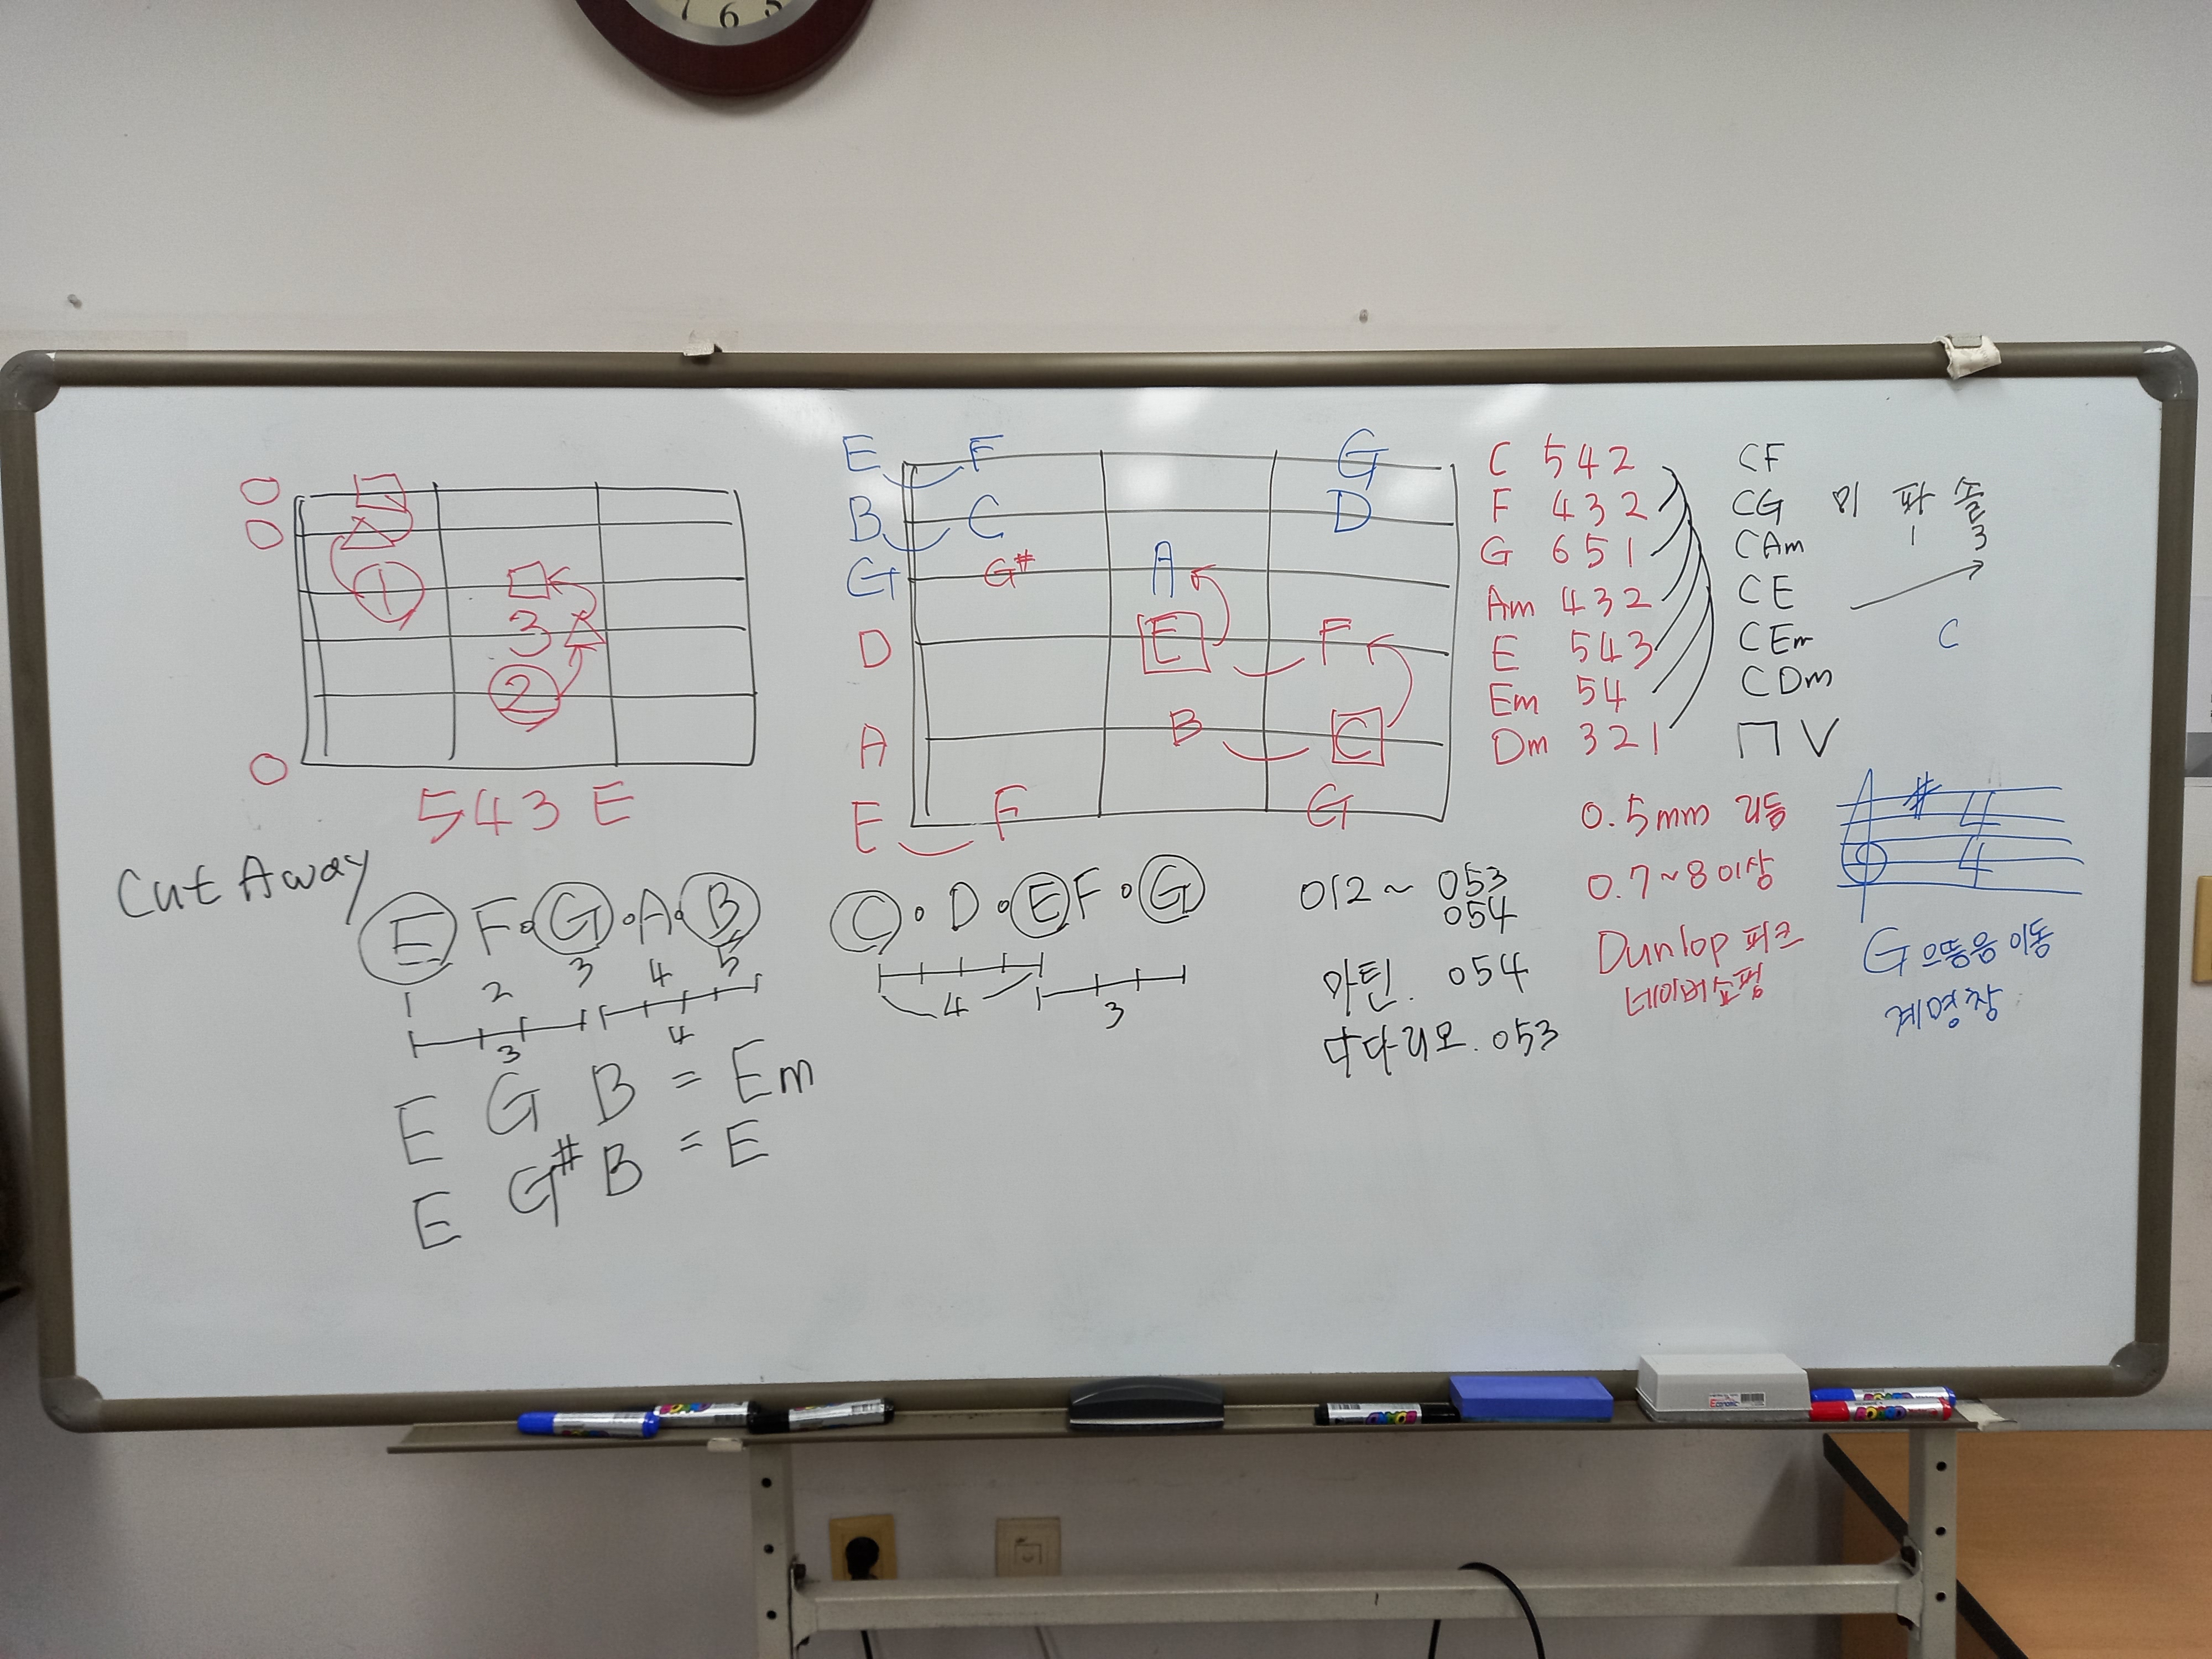 7 6 5
① 3 ②
543 E
E F G
B C D
G G# A
D E F
A B C
E F G
C 542
F 432
G 651
Am 432
E 543
Em 54
Dm 321
CF
CG
CAm
CE
CEm
CDm
미 파 솔
1 3
C
Cut Away
E F G A B
1 2 3 4 5
3 4
E G B = Em
E G# B = E
C D E F G
4 3
012 ~ 053
054
마틴. 054
다다리오. 053
0.5mm 리듬
0.7~8 이상
Dunlop 피크
네이버쇼핑
# 4
4
G 으뜸음 이동
계명창